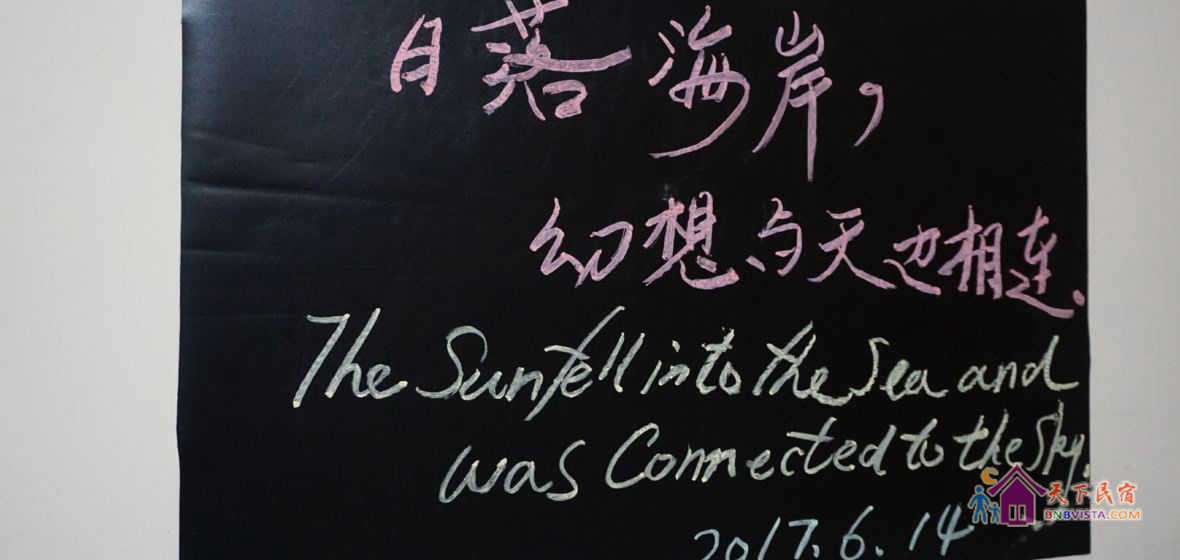 日落海岸，
幻想与天边相连。
The Sun fell into the Sea and
was Connected to the Sky.
2017.6.14
天下民宿
BNBVISTA.COM